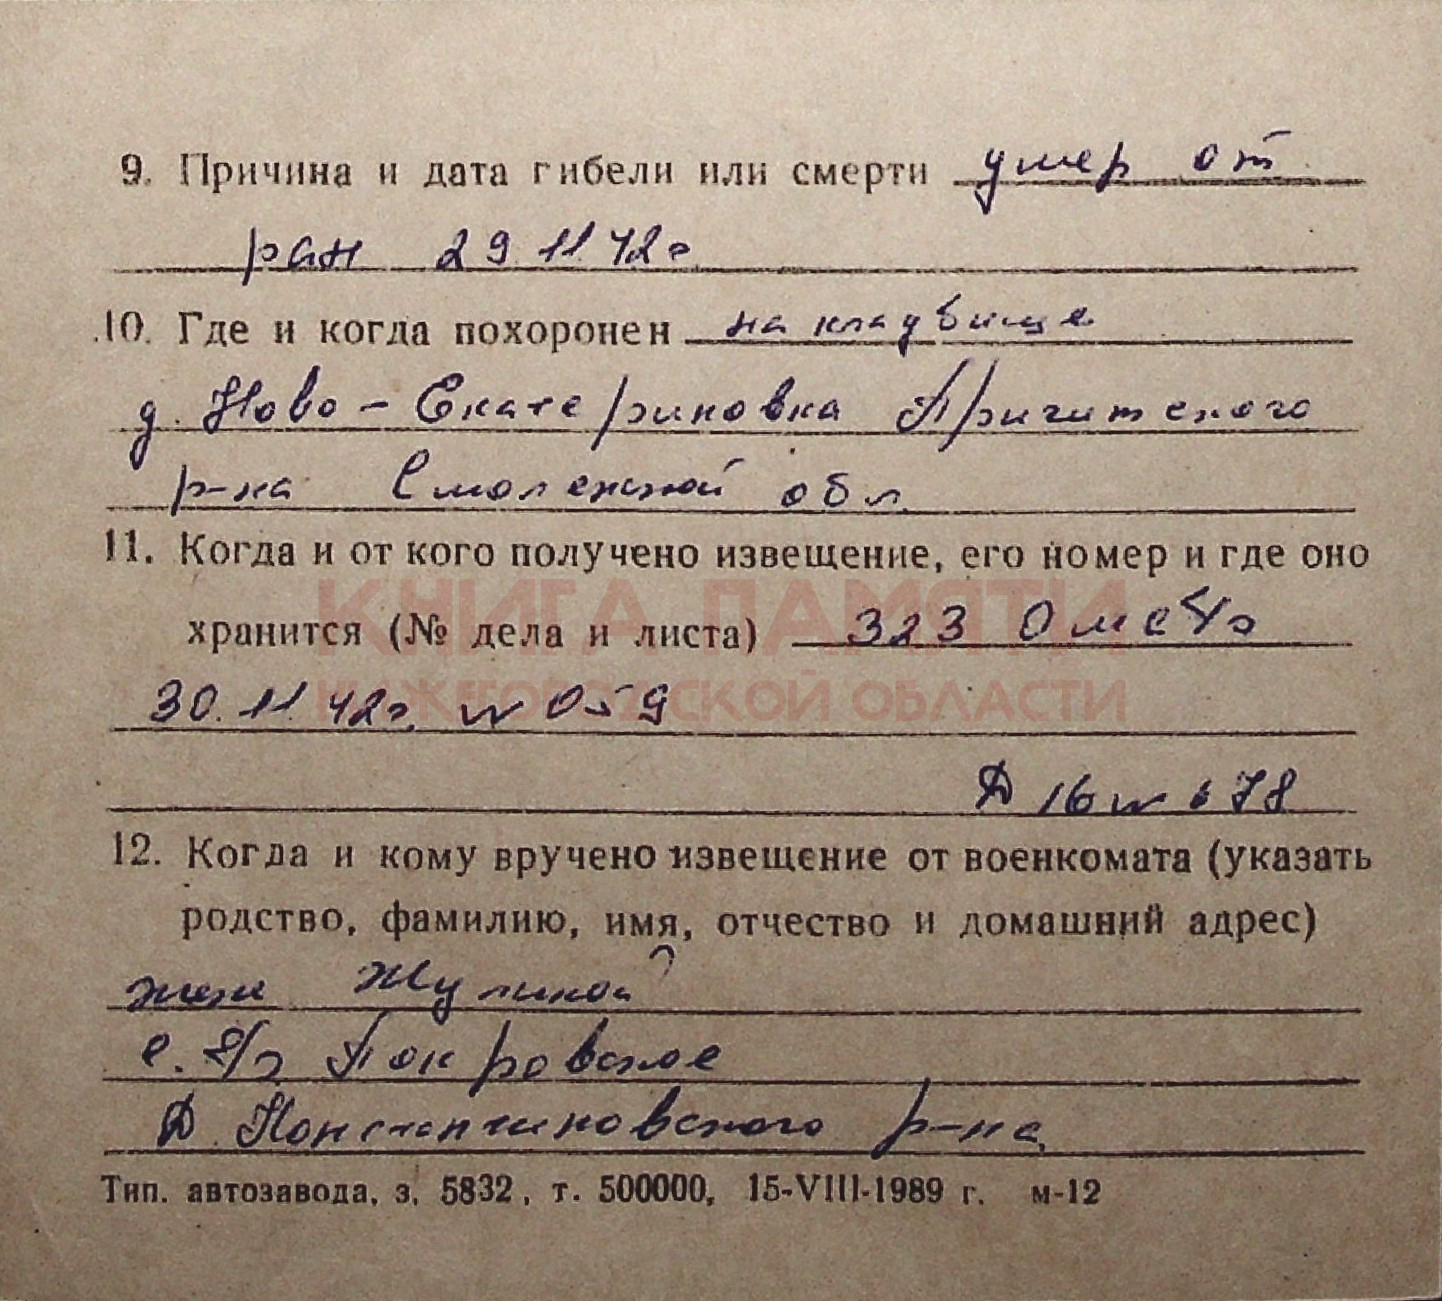 9. Причина и дата гибели или смерти умер от
ран 29.11.42г.
10. Где и когда похоронен на кладбище
д. Ново-Екатериновка Причитского
р-на Смоленской обл.
11. Когда и от кого получено извещение, его номер и где оно
КНИГА ПАМЯТИ
хранится (№ дела и листа) 323 Омсбр
30.11.42г. N 059
НИЖЕГОРОДСКОЙ ОБЛАСТИ
Д 16 N 678
12. Когда и кому вручено извещение от военкомата (указать
родство, фамилию, имя, отчество и домашний адрес)
жене Жулиной
с. Покровское
Д. Константиновского р-на.
Тип. автозавода, з. 5832, т. 500000, 15-VIII-1989 г. м-12